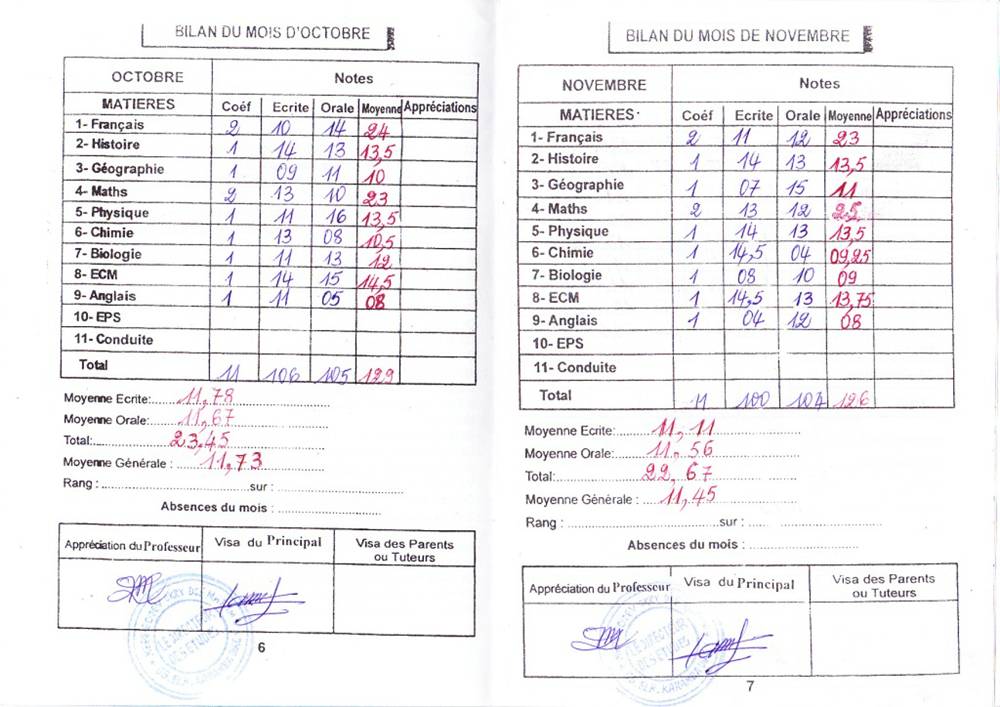 BILAN DU MOIS D'OCTOBRE
OCTOBRE Notes
MATIERES Coéf Ecrite Orale Moyenne Appréciations
1- Français 2 10 14 24
2- Histoire 1 14 13 13,5
3- Géographie 1 09 11 10
4- Maths 2 13 10 23
5- Physique 1 11 16 13,5
6- Chimie 1 13 08 10,5
7- Biologie 1 11 13 12
8- ECM 1 14 15 14,5
9- Anglais 1 11 05 08
10- EPS
11- Conduite
Total 11 106 105 129
Moyenne Ecrite: 11,78
Moyenne Orale: 11,67
Total: 23,45
Moyenne Générale : 11,73
Rang : sur :
Absences du mois :
Appréciation du Professeur Visa du Principal Visa des Parents
ou Tuteurs
6
BILAN DU MOIS DE NOVEMBRE
NOVEMBRE Notes
MATIERES Coéf Ecrite Orale Moyenne Appréciations
1- Français 2 11 12 23
2- Histoire 1 14 13 13,5
3- Géographie 1 07 15 11
4- Maths 2 13 12 25
5- Physique 1 14 13 13,5
6- Chimie 1 14,5 04 09,25
7- Biologie 1 08 10 09
8- ECM 1 14,5 13 13,75
9- Anglais 1 04 12 08
10- EPS
11- Conduite
Total 11 100 104 126
Moyenne Ecrite: 11,11
Moyenne Orale: 11.56
Total: 22,67
Moyenne Générale : 11,45
Rang : sur :
Absences du mois :
Appréciation du Professeur Visa du Principal Visa des Parents
ou Tuteurs
LE DIRECTEUR
DES ETUDES
7